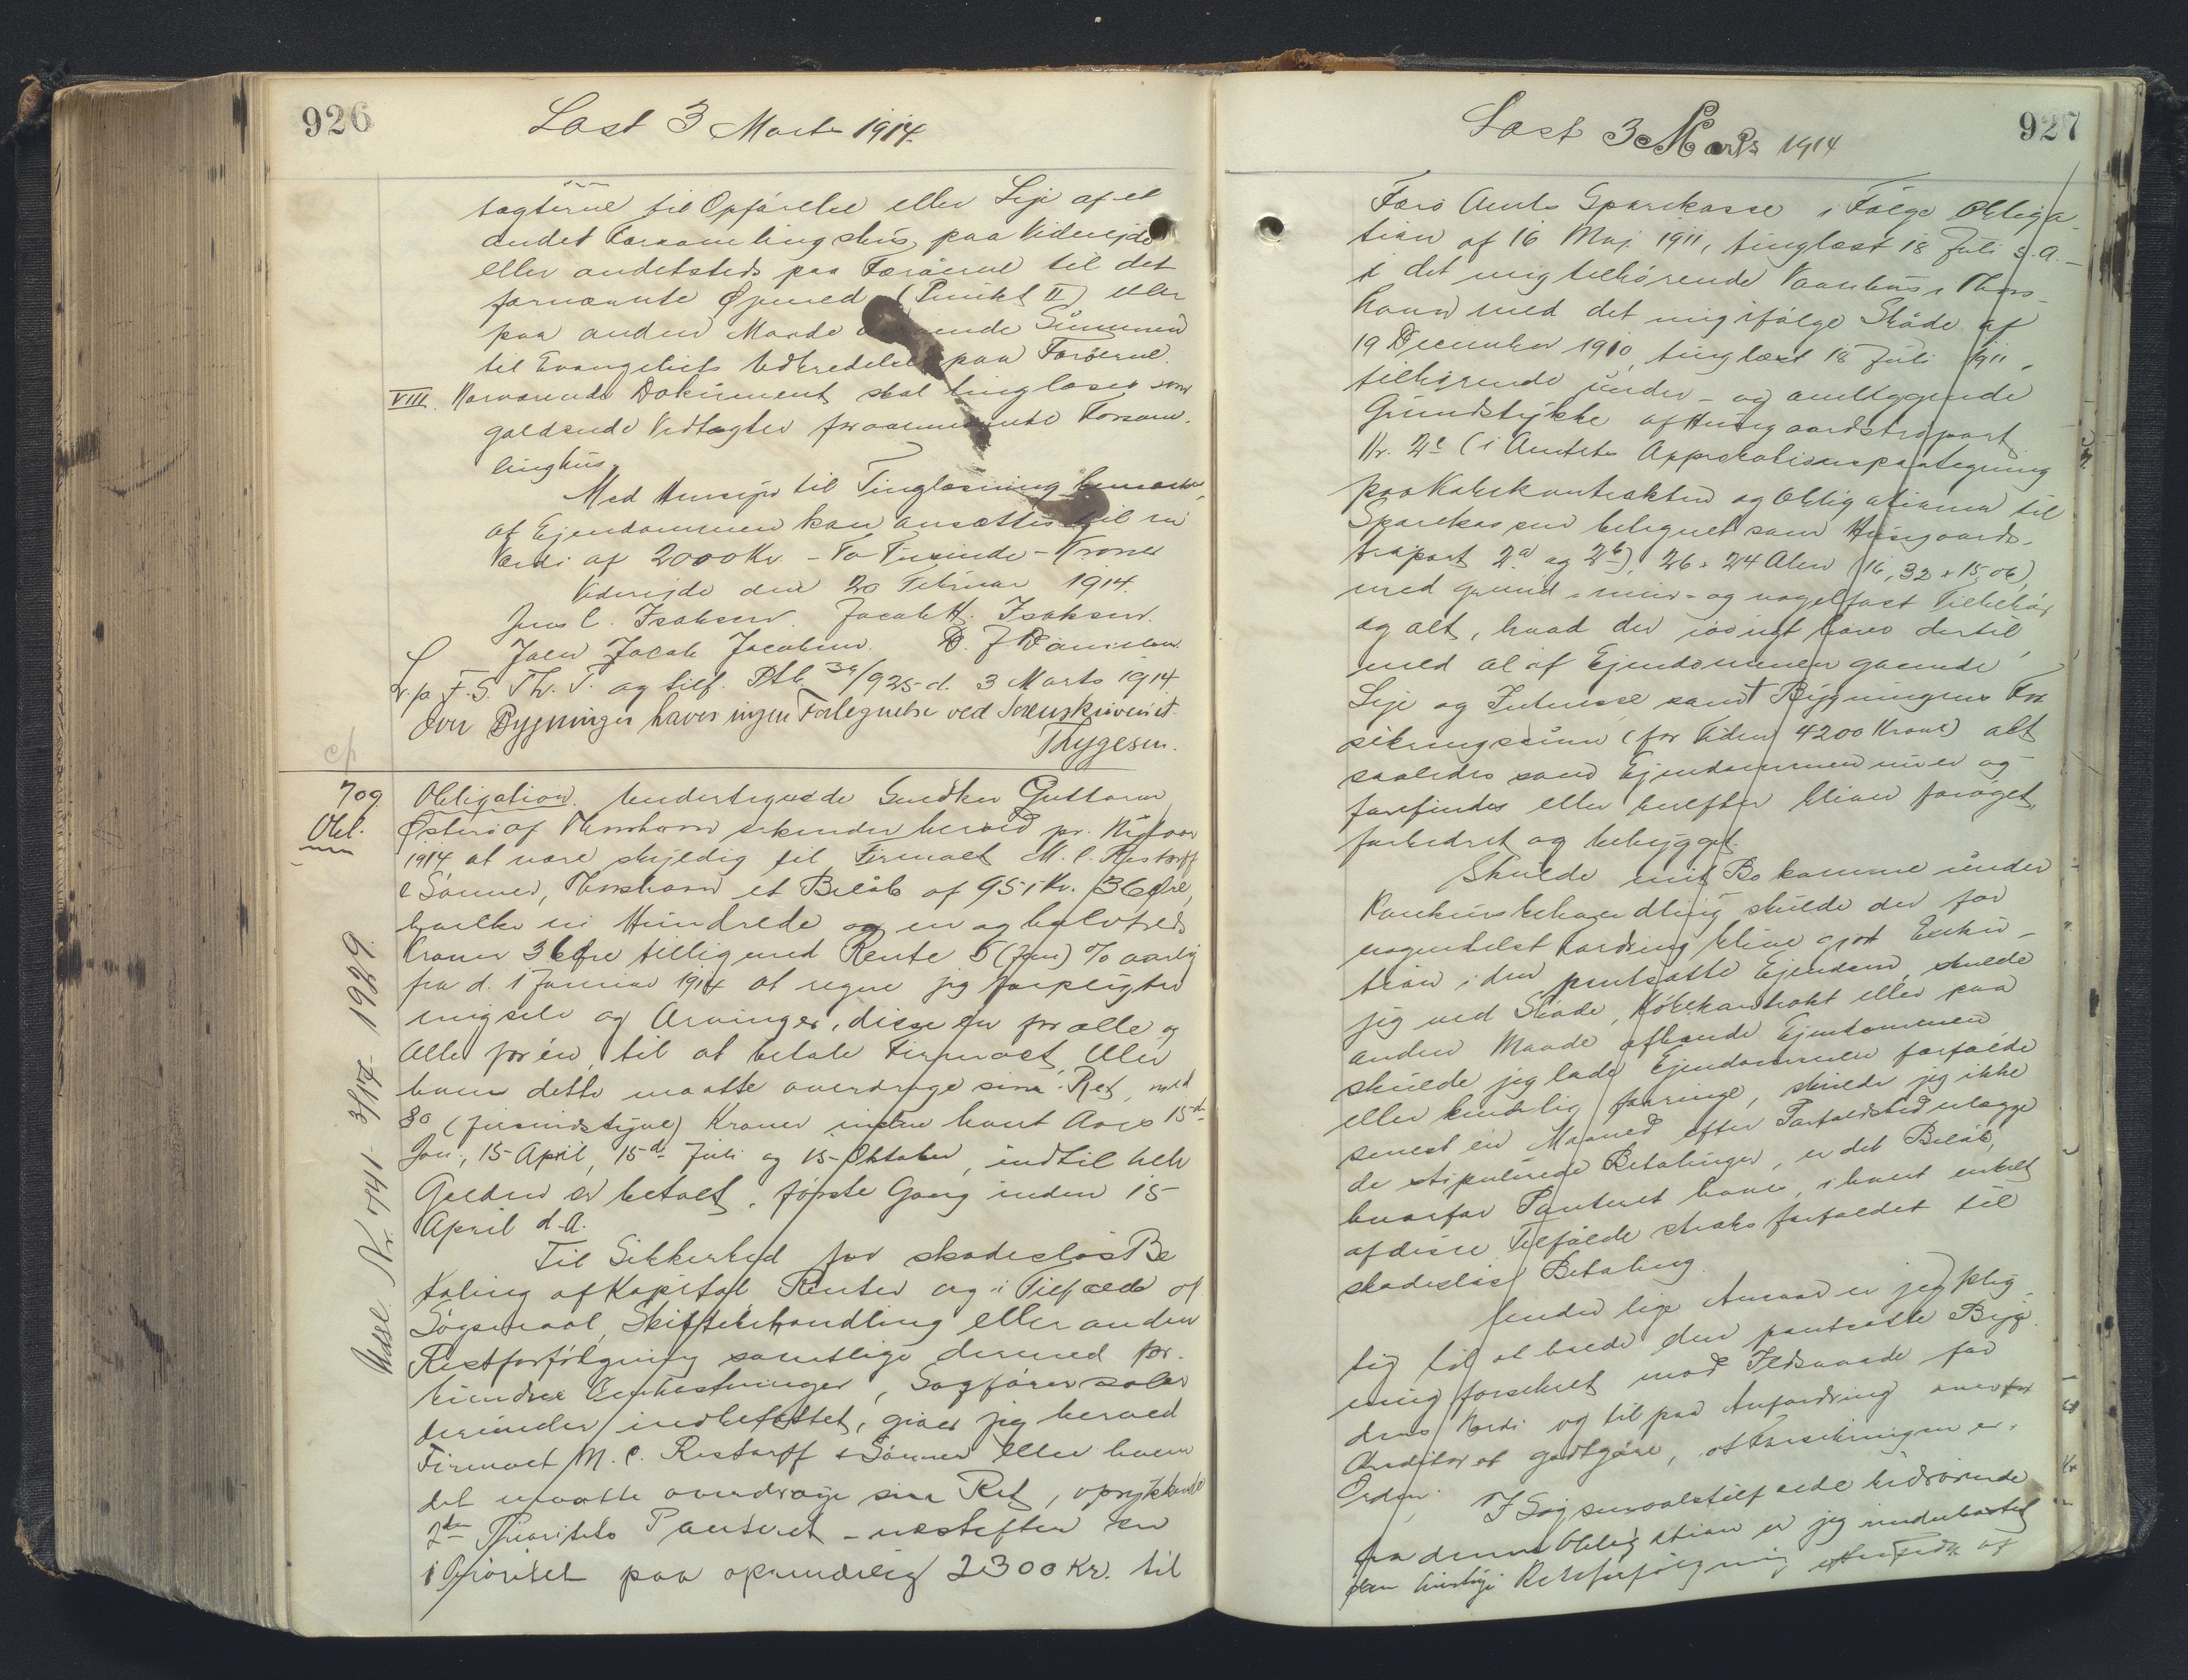 926
Læst 3 Marts 1914.
tægterne til Opførelse eller Leje af et
andet Forsamlingshus paa Viderejde
eller andetsteds paa Færøerne til det
førnævnte Øjemed (Punkt II) eller
paa anden Maade Summen
til Evangeliets Udbredelse paa Færøerne.
VIII. Nærværende Dokument skal tinglæses som
gældende Vedtægter for Forsam-
linghus.
Med Hensyn til Tinglæsning bemærkes,
at Ejendommen kan ansættes til en
Værdi af 2000 Kr. - To Tusinde - Kroner
Viderejde den 20 Februar 1914.
Jens C. Isaksen. Jacob H. Isaksen.
Joen Jacob Jacobsen. D. J. Danielsen.
L. p. F. S. Th. T. og tilf. Ptb. 3a/925 d. 3 Marts 1914
Over Bygninger haves ingen Fortegnelse ved Sorenskriveriet.
Thygesen.
709
Obl.
Obligation. Undertegnede Snedker Guttorm
Østerø af Thorshavn erkender herved pr. Nytaar
1914 at være skyldig til Firmaet M. C. Restorff
& Sønner, Thorshavn et Beløb af 951 Kr. 36 Øre,
hvilke ni Hundrede og en og halvtreds
Kroner 36 Øre tilligemed Rente 5 (fem) % aarlig
fra d. 1 Januar 1914 at regne jeg forpligter
migselv og Arvinger, disse en for alle og
Alle for én, til at betale Firmaet, eller
hvem dette maatte overdrage sin Ret, med
80 (firsindstyve) Kroner inden hvert Aars 15de
Jan., 15 April, 15de Juli og 15 Oktober, indtil hele
Gælden er betalt, første Gang inden 15
April d. A.
Til Sikkerhed for skadesløs Be
taling af Kapital Renter og i Tilfælde af
Søgsmaal, Skiftebehandling eller anden
Retsforfølgning samtlige dermed for-
bundne Omkostninger, Sagførersalær
derunder indbefattet, giver jeg herved
Firmaet M. C. Restorff & Sønner eller hvem
det maatte overdrage sin Ret, oprykkende
2den Prioritets Panteret - næstefter en
1 Prioritet paa oprindelig 2300 Kr. til
Udsl. Nr. 741 3/17 1929.
Læst 3 Marts 1914
927
Færø Amts Sparekasse i Følge Obliga-
tion af 16 Maj 1911, tinglæst 18 Juli s. A. -
i det mig tilhørende Vaanhus i Thors-
havn med det mig ifølge Skøde af
19 December 1910, tinglæst 18 Juli 1911,
tilhørende under- og omliggende
Grundstykke af Husgaardstraport
Nr. 2c (i Amtets Approbationspaategning
paa Købekontrakten og Obligationen til
Sparekassen betegnet som Husgaards-
traport 2a og 2b), 26 x 24 Alen (16,32 x 15,06),
med grund-, mur- og nagelfast Tilbehør
og alt, hvad der iøvrigt hører dertil,
med al af Ejendommen gaaende
Leje og Interesse samt Bygningens For
sikringssum (for Tiden 4200 Kroner) alt
saaledes som Ejendommen nu er og
forefindes eller herefter bliver forøget,
forbedret og bebygget.
Skulde mit Bo komme under
Konkursbehandling skulde der for
nogensomhelst Fordring blive gjort Exeku-
tion i den pantsatte Ejendom, skulde
jeg ved Skøde, Købekontrakt eller paa
anden Maade afhænde Ejendommen,
skulde jeg lade Ejendommen forfalde
eller kendelig forringe, skulde jeg ikke
senest en Maaned efter Forfaldstid erlægge
de stipulerede Betalinger, er det Beløb,
hvorfor Panteret haves, i hvert enkelt
af disse Tilfælde straks forfaldet til
skadesløs Betaling.
Under lige Ansvar er jeg plig-
tig til at holde den pantsatte Byg-
ning forsikret mod Ildsvaade for
dens Værdi og til paa Anfordring overfor
Kreditor at godtgøre, at Forsikringen er i
Orden.
I Søgsmaalstilfælde hidrørende
fra denne Obligation er jeg underkastet
den hurtige Retsforfølgning efter Frdn. af